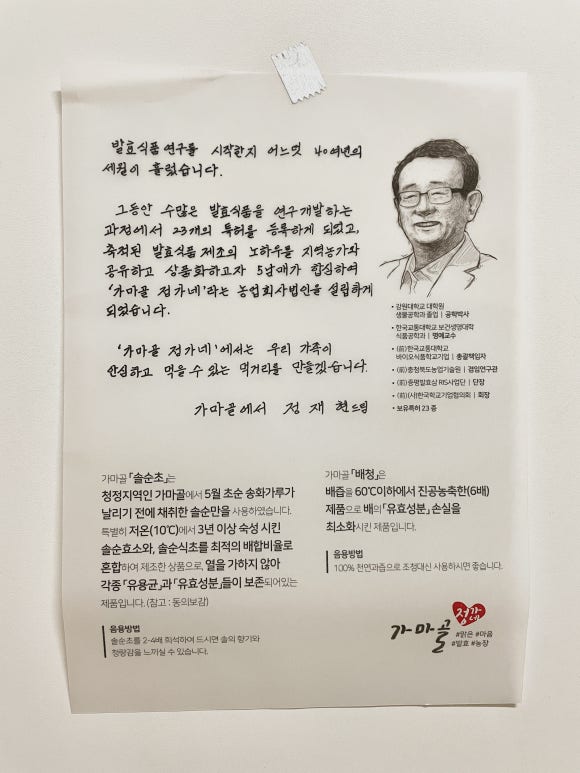 발효식품 연구를 시작한지 어느덧 40여년의
세월이 흘렀습니다.
그동안 수많은 발효식품을 연구개발하는
과정에서 23개의 특허를 등록하게 되었고,
축적된 발효식품 제조의 노하우를 지역농가와
공유하고 상품화하고자 5남매가 합심하여
'가마골 정가네'라는 농업회사법인을 설립하게
되었습니다.
'가마골 정가네'에서는 우리 가족이
안심하고 먹을 수 있는 먹거리를 만들겠습니다.
가마골에서 정재현드림
• 강원대학교 대학원
생물공학과 졸업 | 공학박사
• 한국교통대학교 보건생명대학
식품공학과 | 명예교수
• (前)한국교통대학교
바이오식품학교기업 | 총괄책임자
• (前)충청북도농업기술원 | 겸임연구관
• (前)증평발효삼 RIS사업단 | 단장
• (前)(사)한국학교기업협의회 | 회장
• 보유특허 23 종
가마골「솔순초」는
청정지역인 가마골에서 5월 초순 송화가루가
날리기 전에 채취한 솔순만을 사용하였습니다.
특별히 저온(10℃)에서 3년 이상 숙성 시킨
솔순효소와, 솔순식초를 최적의 배합비율로
혼합하여 제조한 상품으로, 열을 가하지 않아
각종「유용균」과「유효성분」들이 보존되어있는
제품입니다. (참고 : 동의보감)
음용방법
솔순초를 2-4배 희석하여 드시면 솔의 향기와
청량감을 느끼실 수 있습니다.
가마골「배청」은
배즙을 60℃이하에서 진공농축한(6배)
제품으로 배의「유효성분」손실을
최소화시킨 제품입니다.
음용방법
100% 천연과즙으로 조청대신 사용하시면 좋습니다.
가마골 정가네
#맑은 #마음
#발효 #농장